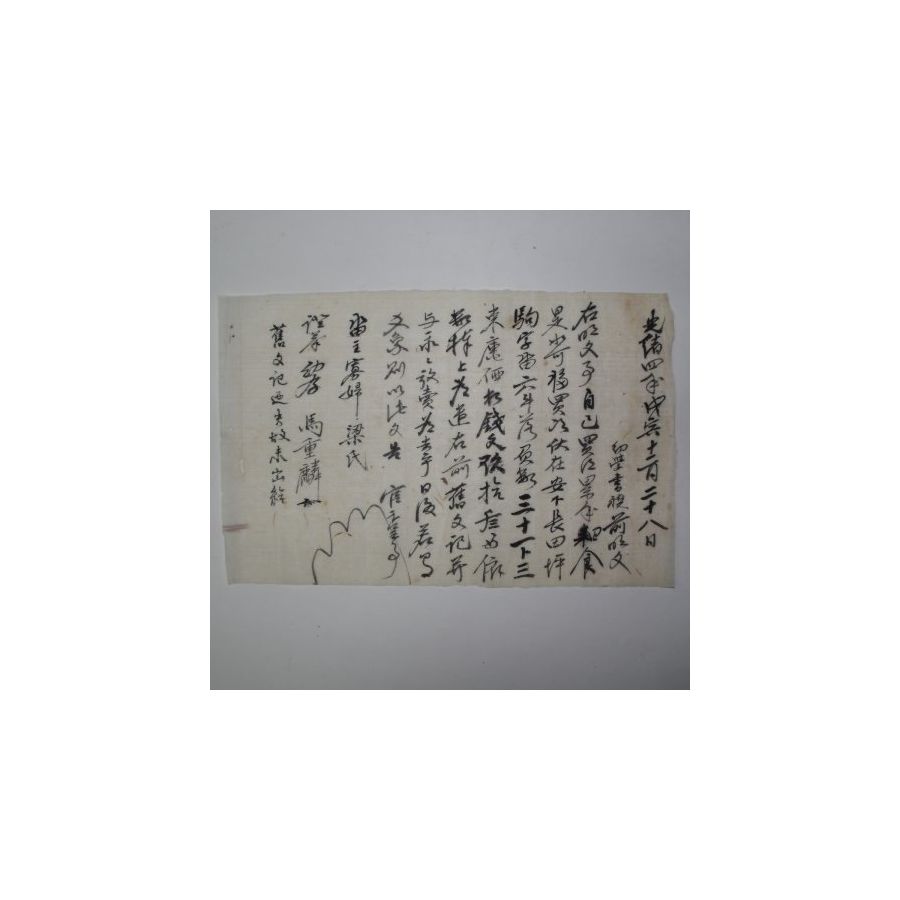 光緖四年戊寅十二月二十八日
前明文
右明文事自己買得累年耕食
是如可移買次伏在安下長田坪
駒字畓六斗落負數三十一卜三
束庫価折錢文拾而依
數捧上爲遣右前舊文記幷
与永永放賣爲去乎日後若有
爻象則以此文告官卞正事
畓主寡婦梁氏
證筆幼學馬重麟
舊文記逢書故未出給